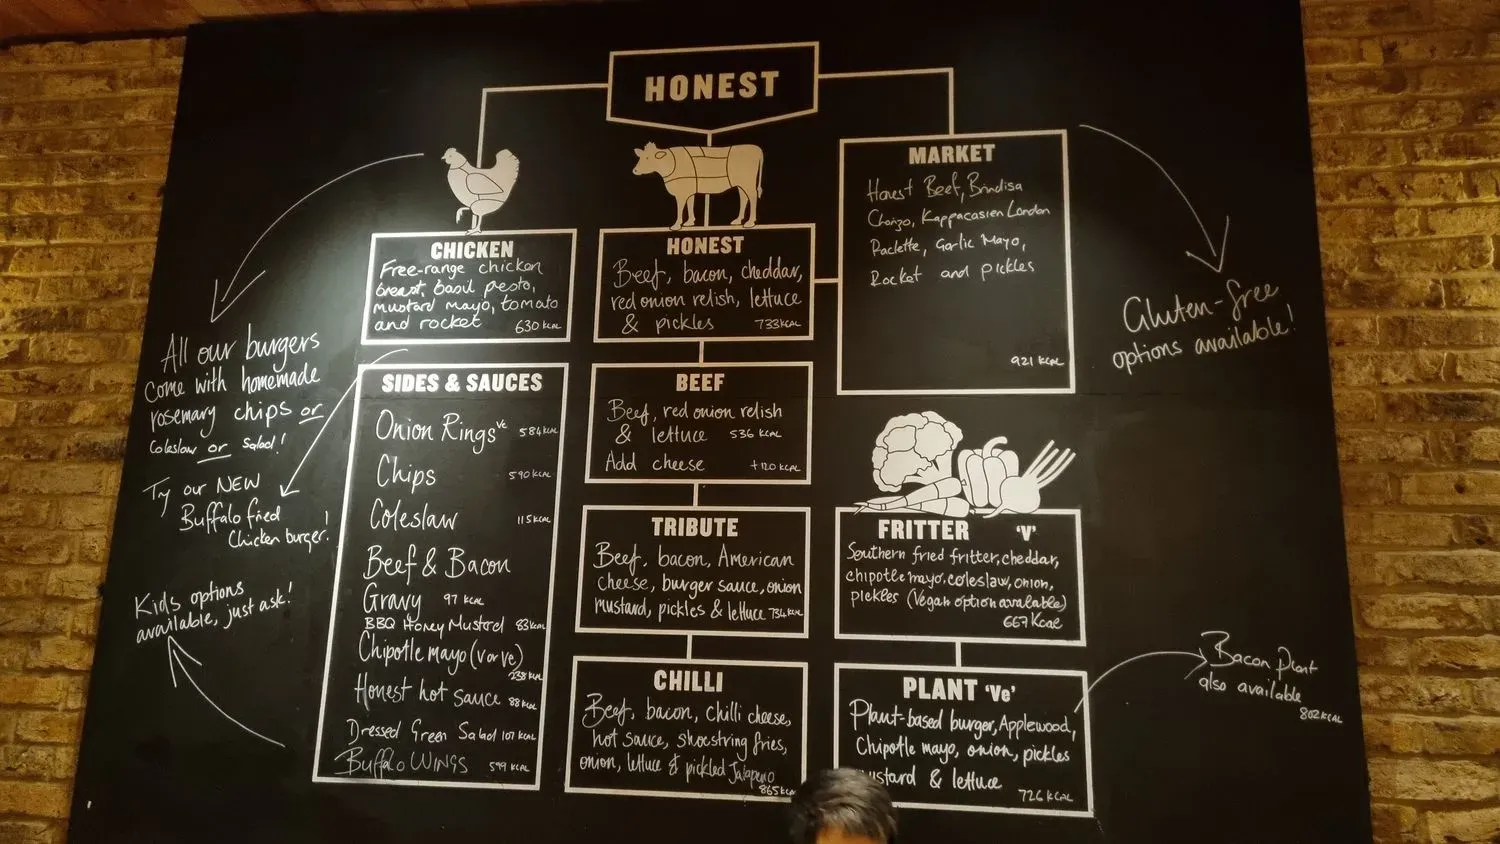 HONEST
CHICKEN
Free-range chicken
breast, basil pesto,
mustard mayo, tomato
and rocket 630 kcal
SIDES & SAUCES
Onion Rings ve 584 kcal
Chips 590 kcal
Coleslaw 115 kcal
Beef & Bacon
Gravy 97 kcal
BBQ Honey Mustard 83 kcal
Chipotle mayo (v or ve)
238 kcal
Honest hot sauce 88 kcal
Dressed Green Salad 107 kcal
Buffalo WINGS 599 kcal
HONEST
Beef, bacon, cheddar,
red onion relish, lettuce
& pickles 733 kcal
BEEF
Beef, red onion relish
& lettuce 536 kcal
Add cheese +120 kcal
TRIBUTE
Beef, bacon, American
cheese, burger sauce, onion
mustard, pickles & lettuce 734 kcal
CHILLI
Beef, bacon, Chilli cheese,
hot sauce, shoestring fries,
onion, lettuce & pickled Jalapeno
865 kcal
MARKET
Honest Beef, Brindisa
Chorizo, Kappacasien London
Raclette, Garlic Mayo,
Rocket and pickles
921 kcal
FRITTER 'V'
Southern fried fritter, cheddar,
chipotle mayo, coleslaw, onion,
pickles (Vegan option available)
667 kcal
PLANT 'Ve'
Plant-based burger, Applewood,
Chipotle mayo, onion, pickles
& lettuce
726 kcal
All our burgers
come with homemade
rosemary chips or
Coleslaw or Salad!
Try our NEW
Buffalo fried
Chicken burger!
Kids options
available, just ask!
Gluten-free
options available!
Bacon Plant
also available
802 kcal